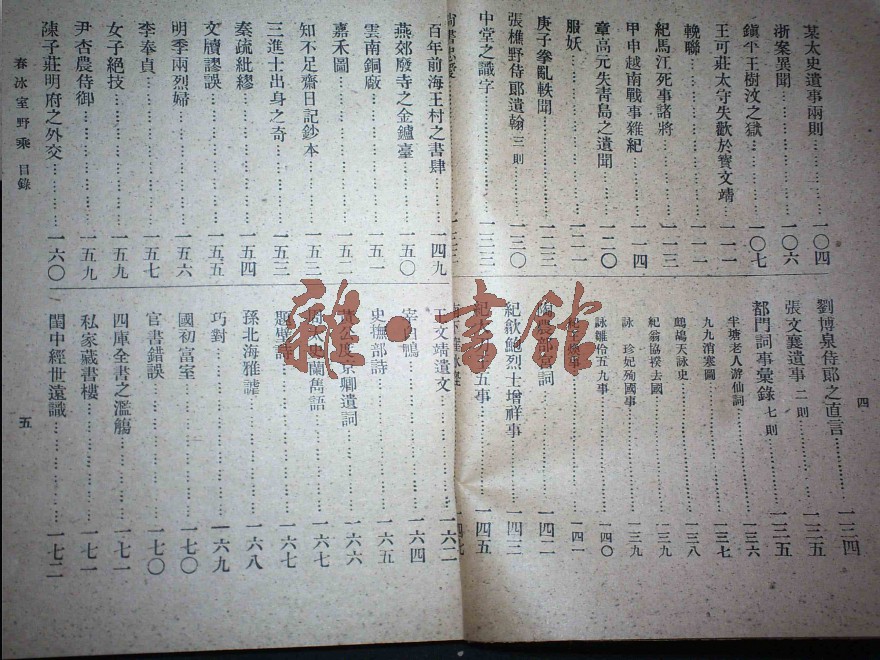 某太史遺事兩則 一〇四
浙案異聞 一〇六
鎮平王樹汶之獄 一〇七
王可莊太守失歡於寶文靖 一一一
輓聯 一一二
紀馬江死事諸將 一一三
甲申越南戰事雜紀 一一四
章高元失靑島之遺聞 一二〇
服妖 一二一
庚子拳亂軼聞 一二三
張樵野侍郞遺翰 三則 一三〇
中堂之識字 一三三
劉博泉侍郞之直言 一三四
張文襄遺事 二則 一三五
都門詞事彙錄 七則 一三六
半塘老人游仙詞 一三七
九九消寒圖 一三七
鷓鴣天詠史 一三八
紀翁協揆去國 一三九
詠 珍妃殉國事 一三九
詠雛伶五九事 一四〇
一四一
農部宮詞 一四二
紀歙鮑烈士增祥事 一四三
五事 一四五
四
百年前海王村之書肆 一四九
燕郊廢寺之金鑪臺 一五〇
雲南銅厰 一五一
嘉禾圖 一五二
知不足齋日記鈔本 一五二
三進士出身之奇 一五三
奏疏紕繆 一五四
文牘謬誤 一五五
明季兩烈婦 一五六
李奉貞 一五七
女子絕技 一五九
尹杏農侍御 一五九
陳子莊明府之外交 一六〇
王文靖遺文 一六二
宰白鴨 一六四
史撫部詩 一六五
公度京卿遺詞 一六六
周太史蘭雋語 一六七
題壁詩 一六七
孫北海雅謔 一六八
巧對 一六九
國初富室 一七〇
官書錯誤 一七〇
四庫全書之濫觴 一七一
私家藏書樓 一七一
閨中經世遠識 一七二
春冰室野乘 目錄
五
雜·書館